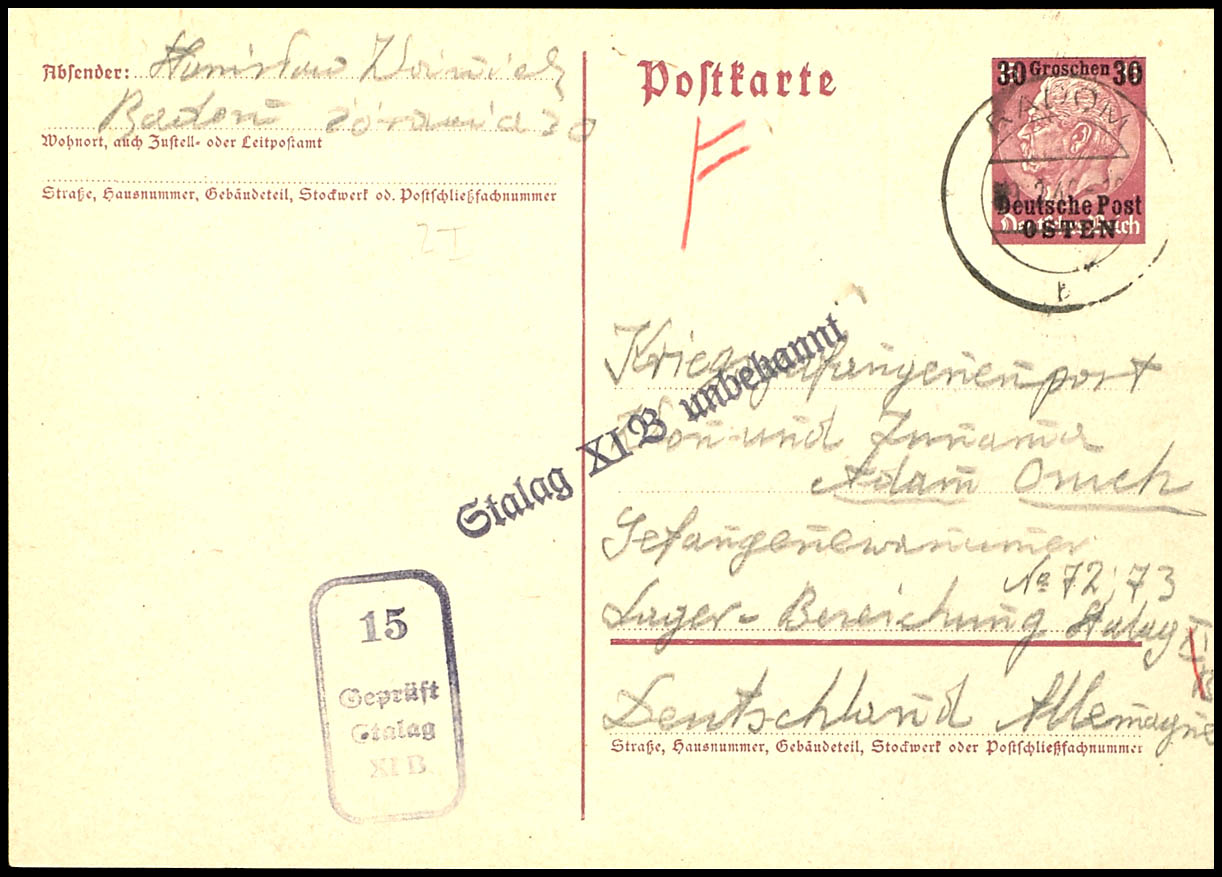 Absender: Stanislaw
Radom 30
Wohnort, auch Zustell- oder Leitpostamt
Straße, Hausnummer, Gebäudeteil, Stockwerk od. Postschließfachnummer
Postkarte
F
30 Groschen 30
RADOM
Deutsche Post
OSTEN
Deutsches Reich
b
Stalag XI B unbekannt
15
Geprüft
Stalag
XI B
Kriegsgefangenenpost
und
Adam
Gefangenennummer
No 72,73
Lager-Bereichung Stalag XI
B
Deutschland Allemagne
Straße, Hausnummer, Gebäudeteil, Stockwerk oder Postschließfachnummer